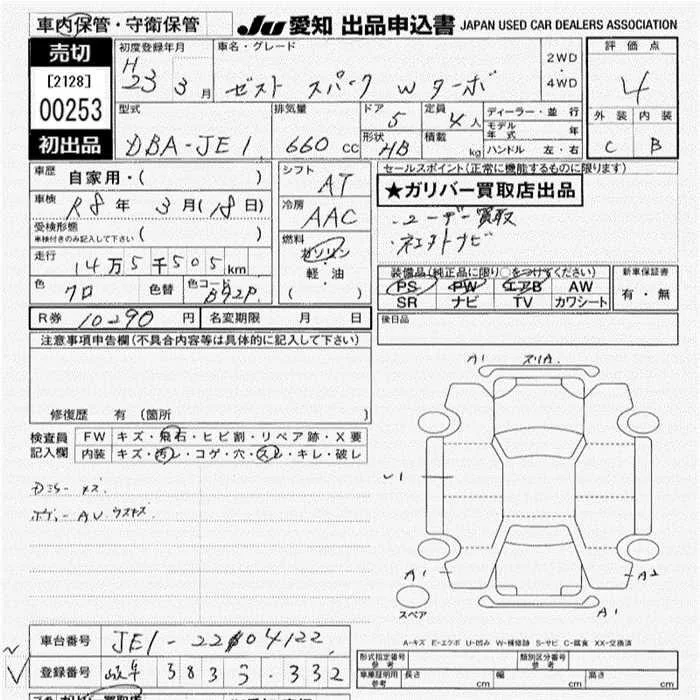 車内保管・守衛保管
JU 愛知 出品申込書 JAPAN USED CAR DEALERS ASSOCIATION
売切
[2128]
00253
初出品
初度登録年月
H23 3月
車名・グレード
ゼスト スパーク W ターボ
2WD
・
4WD
評価点
4
外装 内装
C B
型式
DBA-JE1
排気量
660 cc
ドア
5
形状
HB
定員
4人
積載
kg
ディーラー・並行
モデル年式 年
ハンドル 左・右
車歴 自家用・( )
車検 R8年 3月(18日)
受検形態
車検付きのみ記入して下さい ( )
走行 14万5千505km
色 クロ 色替 色コード B92P
シフト
AT
冷房
AAC
燃料
ガソリン
・
軽・油
( )
セールスポイント(正常に機能するものに限ります)
★ガリバー買取店出品
・ユーザー買取
装備品(純正品に限り○をつけてください)
PS PW エアB AW
SR ナビ TV カワシート
新車保証書
有・無
R券 10290 円 名変期限 月 日
後日品
注意事項申告欄(不具合内容等は具体的に記入して下さい)
修復歴 有 (箇所 )
検査員記入欄
FW キズ・飛石・ヒビ割・リペア跡・X要
内装 キズ・汚レ・コゲ・穴・スレ・キレ・破レ
A1
A1
A2
A1
スペア
A-キズ E-エクボ U-凹み W-補修跡 S-サビ C-腐食 XX-交換済
車台番号 JE1-2204122
登録番号 岐阜 383 332
形式指定番号 参考
類別区分番号 参考
車庫証明用 参考 長さ cm 幅 cm 高さ cm